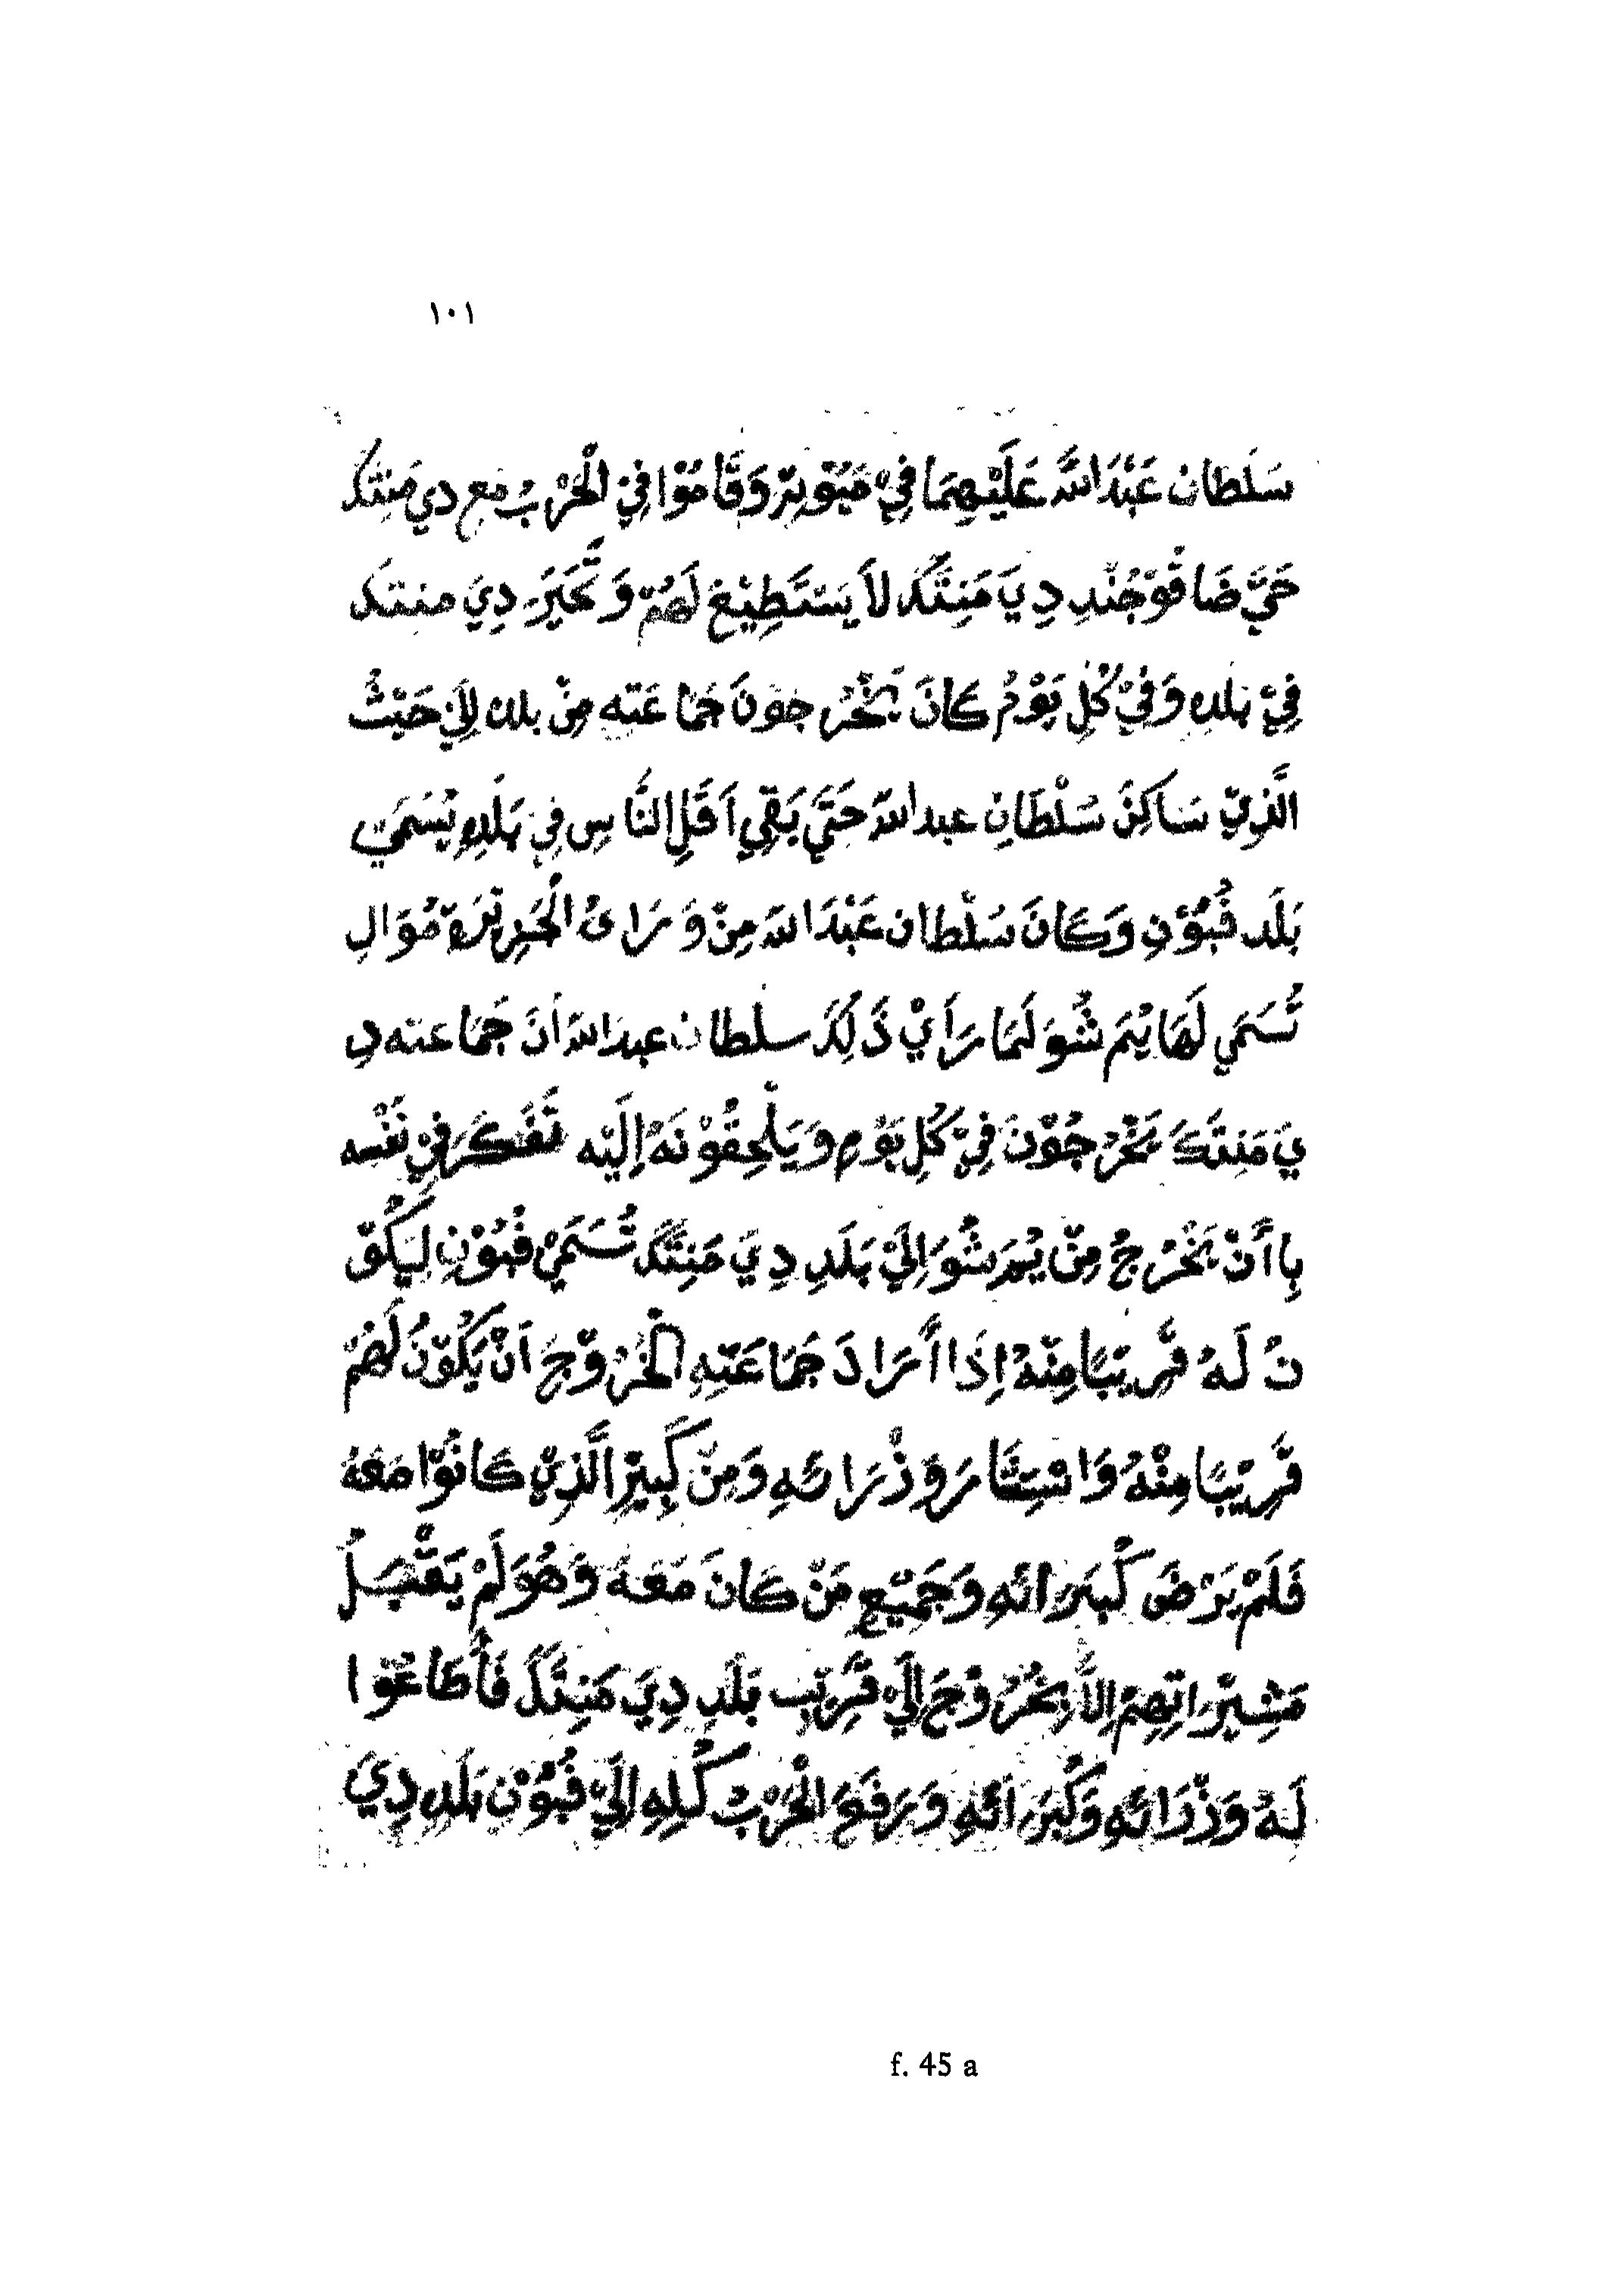 ١٠١
سَلْطان عَبْدَ اللَّه عَلَيْهِمَا فِيْ مَبْوِيْر وَقَامُوْا فِيْ الْحَرْبُ مع دي مَنِتَكَ
حَتَّيَ ضَاقُوْ جُنْدِ دِيَ مَنِتَكَ لاَ يَسْتَطِيْعَ لَهُمْ وَ تَحَيَّرَ دِيَ منتكَ
فِيْ بَلَدِهِ وَفِيْ كُلِ يَوْمُ كانَ يَخْرُجونَ جَمَاعَتِه مِنْ بلده لِاَيْ حَيْثُ
الَّذِيْ سَاكِنْ سَلْطَانِ عبد اللَّه حَتَّيَ بَقِي اَقَلِ النَّاسِ فِيْ بَلَدِهِ يُسَمَيْ
بَلَد فُبُوْنِ وَكَانَ سَلْطان عَبْدَ اللَّه مِنْ وَرَاىُ الْجَزِيْرَةْ مُوَالِ
تُسَمَي لَهَا يُمَ شُوَ لَمَا رَاَيْ ذَلِكَ سلطان عبد اللَّه اَنَ جَمَاعته دِ
يَ مَنِتَكَ يَخْرُجُوْنَ فِيْ كُلِ يَوْمٍ وَيَلْحِقُوْنَهُ اِلَيْه تَفَكَرَ فِيْ نَفْسه
بِاأَنْ يَخْرُجُ مِنْ يُمَ شُوَ اِلَيْ بَلَدِ دِيَ مَنِتَكَ تُسَمَيْ فُبُوْنِ لِيَكُوْ
نَ لَهُ قَرِيْبًا مِنْهُ اِذَا أَرَادَ جَمَاعَتِهِ الْخُرُوْجَ اَنْ يَكُوْنُ لَهُمْ
قَرِيْبًا مِنْهُ وَاسْتِشَارَ وَذْرَائِهِ وَمِنْ كَبِيْرِ الَّذِيْ كَانُوْا مَعَهُ
فَلَمْ يَرْضَ كُبَرَائِهِ وَجَمِيْعِ مَنْ كَانَ مَعَهُ وَهُوَ لَمْ يَقْبَلُ
مَشِيْرَاتِهِمْ اِلاَّ بِخُرُوْجَ اِلَيْ قَرِيْبِ بَلَدِ دِيَ مَنِتَكَ فَأَطَاعُوْا
لَهُ وَذْرَائِهِ وَكُبَرَائِهِ وَرَفَعَ الْحَرْبُ كُلِهِ اِلَيْ فُبُوْنِ بَلَدِ دِيَ
f. 45 a